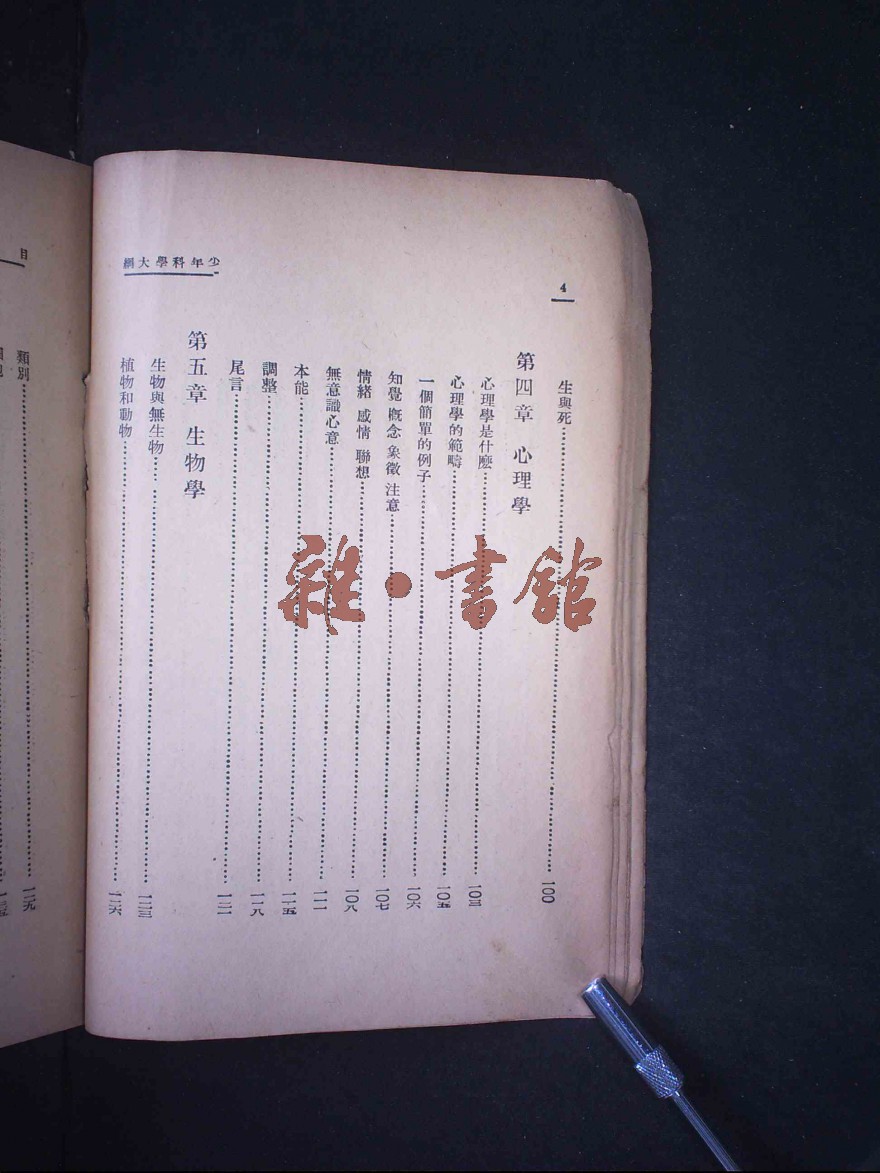 少年科學大綱
4
生與死……一〇〇
第四章 心理學
心理學是什麽……一〇三
心理學的範疇……一〇五
一個簡單的例子……一〇六
知覺 概念 象徵 注意……一〇七
情緒 感情 聯想……一〇八
無意識心意……一一一
本能……一一五
調整……一一八
尾言……一二一
第五章 生物學
生物與無生物……一二三
植物和動物……一二六
目
類別……一二九
雜·書館